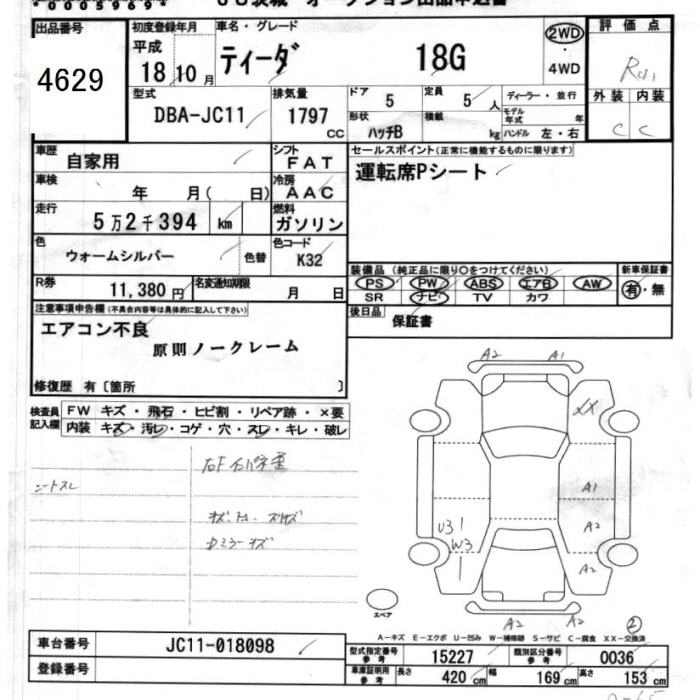 出品番号 初度登録年月 車名・グレード 2WD 評価点
4629 平成 18 10月 ティーダ 18G ・ 4WD R41
型式 排気量 ドア 定員 ディーラー・並行 外装 内装
DBA-JC11 1797 CC 5 5人 モデル年式 年 C C
形状 ハッチB 積載 kg ハンドル 左・右
車歴 自家用 シフト FAT セールスポイント(正常に機能するものに限ります)
車検 年 月( 日) 冷房 AAC 運転席Pシート
走行 5万2千394 km 燃料 ガソリン
色 ウォームシルバー 色替 色コード K32
装備品(純正品に限り○をつけてください) 新車保証書
R券 11,380円 名変通知期限 月 日 PS PW ABS エアB AW 有・無
SR ナビ TV カワ
注意事項申告欄(不具合内容等は具体的に記入して下さい) 後日品 保証書
エアコン不良
原則ノークレーム
修復歴 有〔箇所 〕
A2 A1
検査員記入欄 FW キズ・飛石・ヒビ割・リペア跡・×要
内装 キズ・汚レ・コゲ・穴・スレ・キレ・破レ
XX
シートスレ
A1
U3 A2
W3
A2
スペア
A2 A2 ②
A-キズ E-エクボ U-凹み W-補修跡 S-サビ C-腐食 XX-交換済
車台番号 JC11-018098
型式指定番号 参考 15227 類別区分番号 参考 0036
登録番号 車庫証明用 参考 長さ 420 cm 幅 169 cm 高さ 153 cm